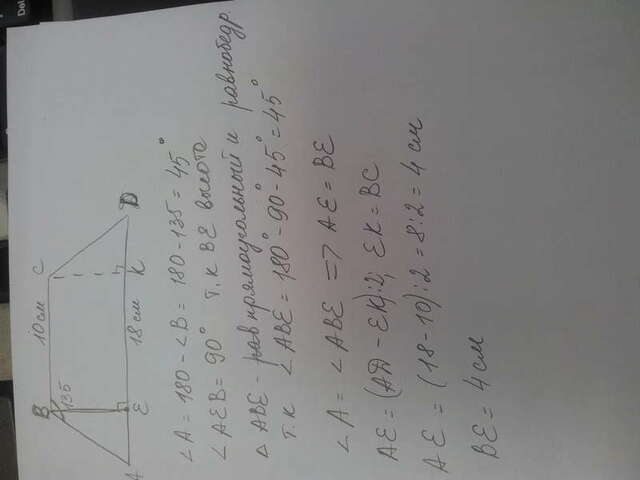 B 10 см C
135
A E 18 см K D
∠A = 180 - ∠B = 180 - 135 = 45°
∠AEB = 90° т.к BE высота
△ ABE - прямоугольный и равнобедр.
т.к ∠ABE = 180° - 90° - 45° = 45°
∠A = ∠ABE => AE = BE
AE = (AD - EK):2; EK = BC
AE = (18 - 10):2 = 8:2 = 4 см
BE = 4 см